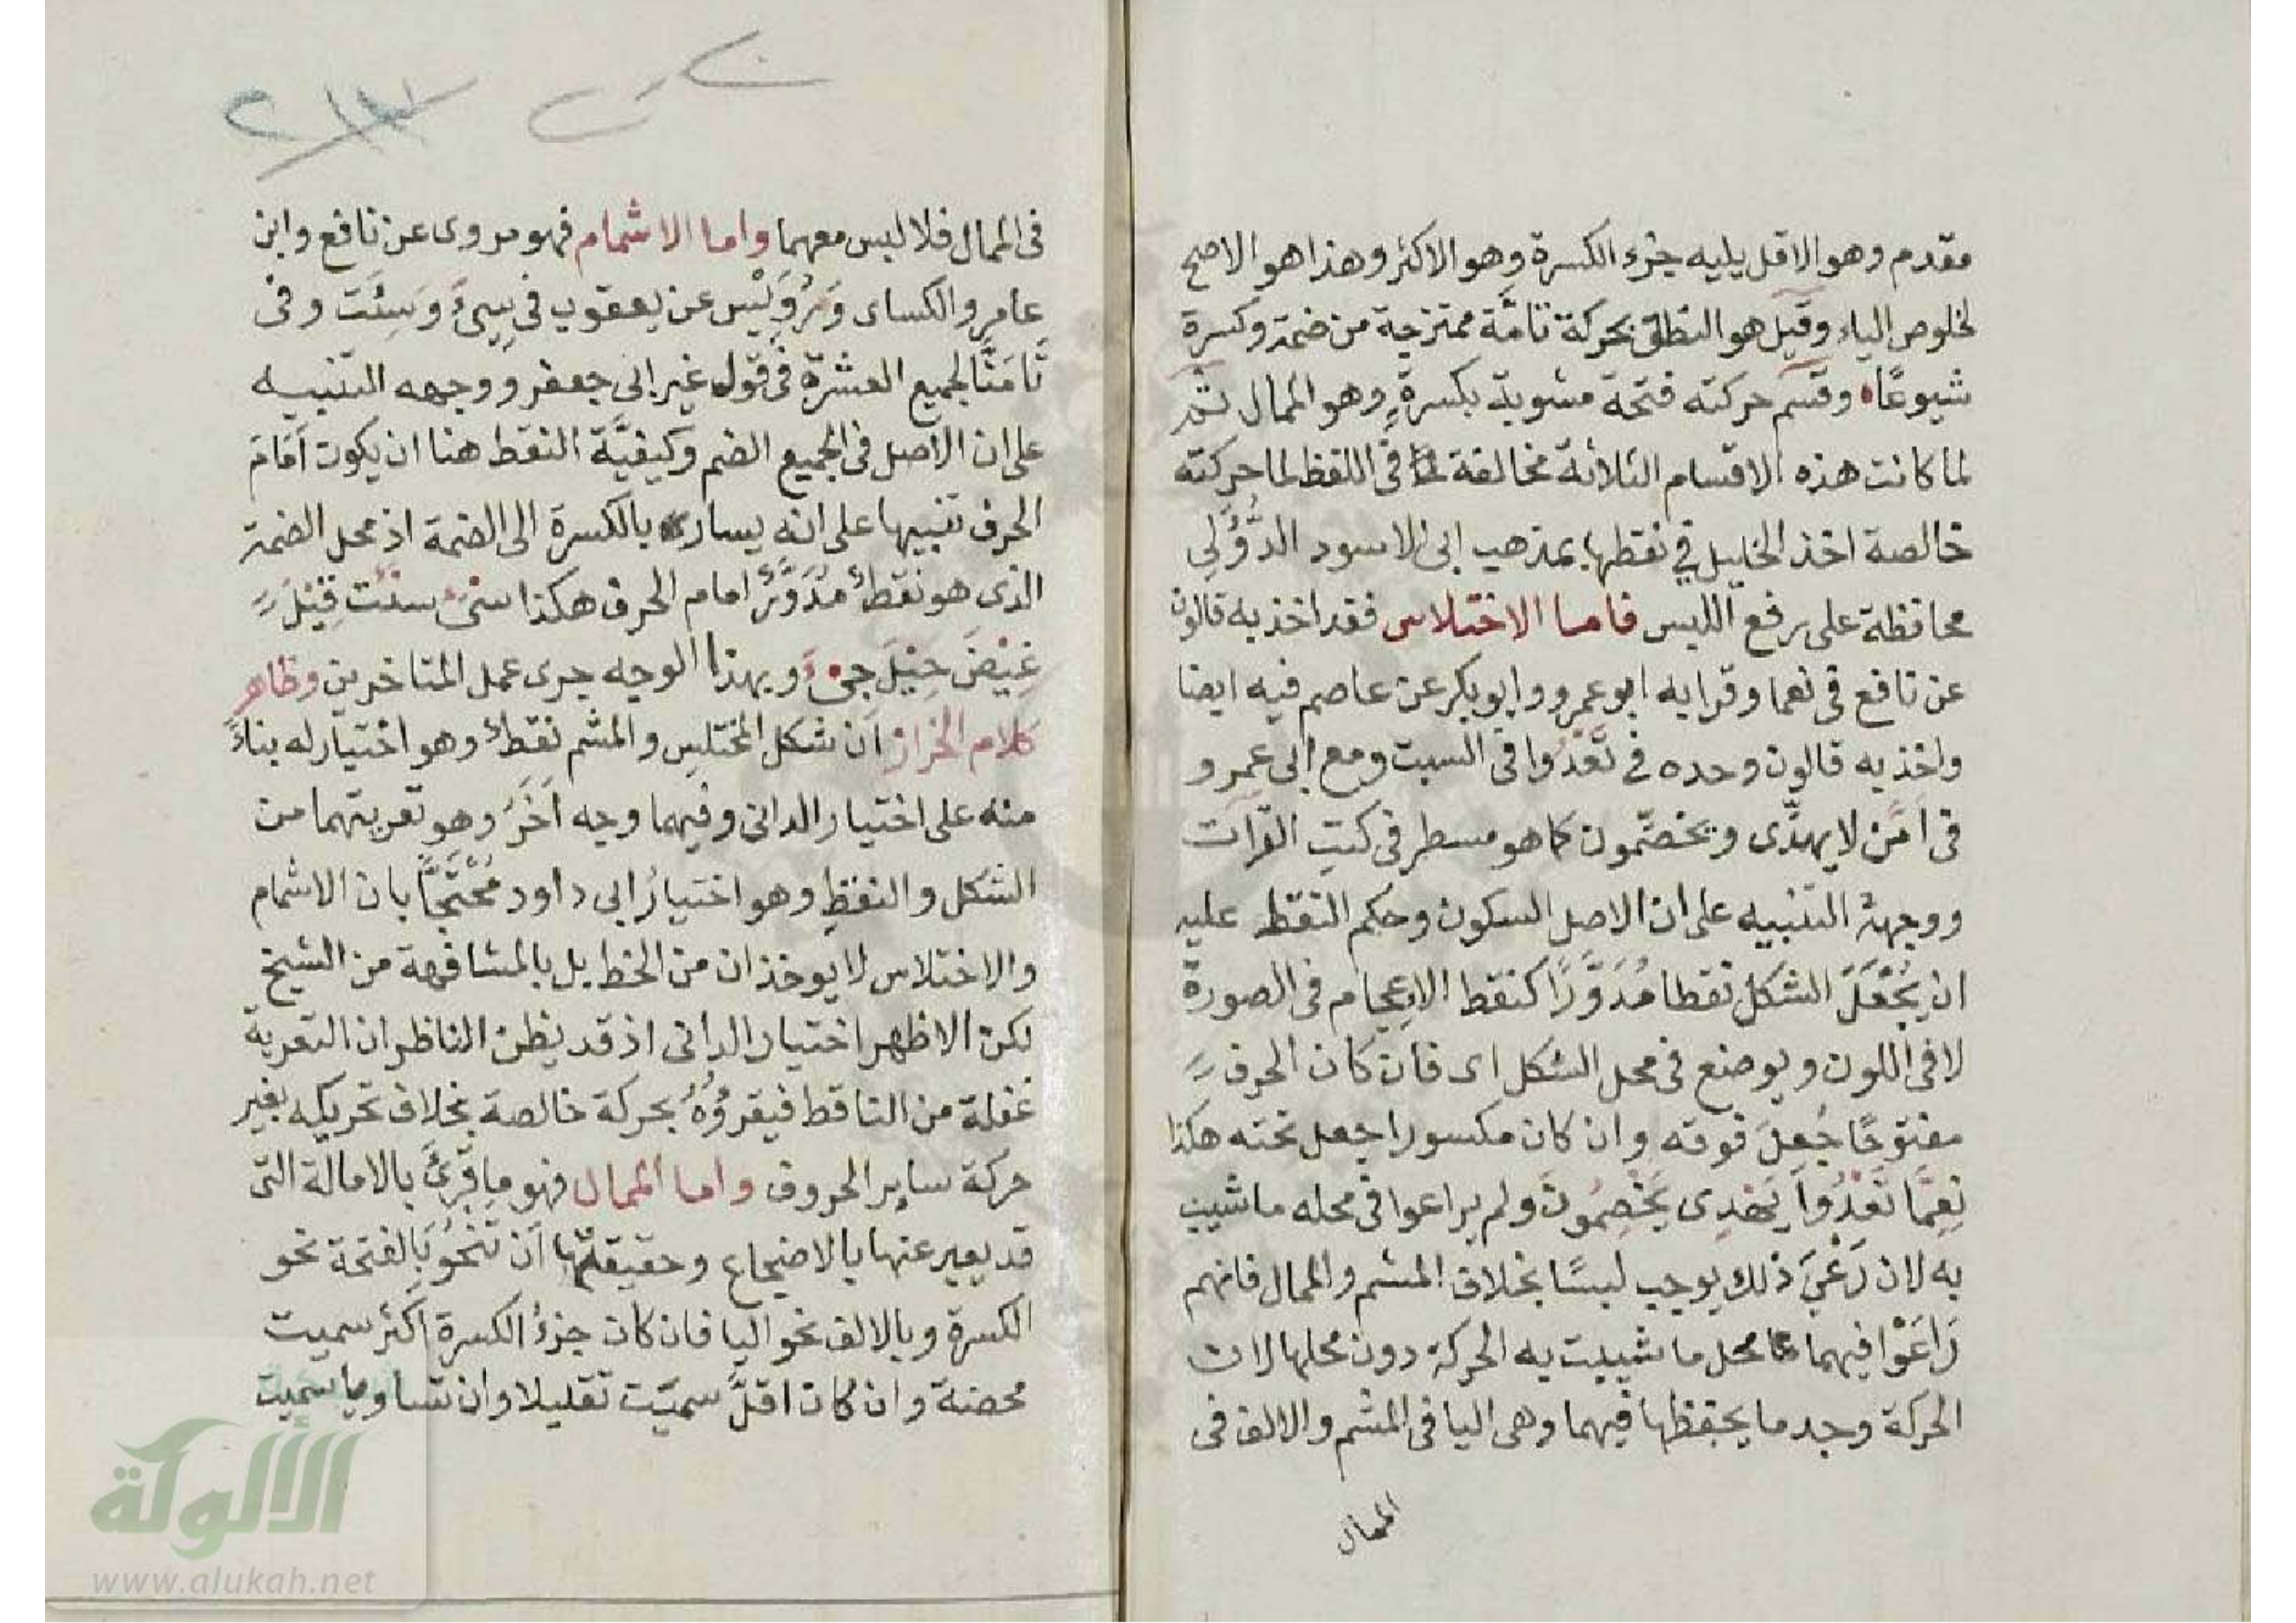 مقدم وهو الاقل يليه جزء الكسرة وهو الاكثر وهذا هو الاصح
لخلوص الياء وقيل هو النطق بحركة تامّة ممتزجة من ضمة وكسرة
شيوعًا وقسم حركته فتحة مشوبة بكسرةٍ وهو الممال ثم
لما كانت هذه الاقسام الثلاثة مخالفة فى اللفظ لما حركته
خالصة اخذ الخليل في نقطها بمذهب ابى الاسود الدُّؤَلي
محافظة على رفع اللبس فاما الاختلاس فقد اخذ به قالون
عن نافع فى نعما وقرا به ابو عمرو وابو بكر عن عاصم فيه ايضا
واخذ به قالون وحده في تَعْدُوا فى السبت ومع ابى عمرو
فى امّن لا يهدّى ويخصّمون كما هو مسطر فى كتب القرات
ووجهه التنبيه على ان الاصل السكون وحكم النقط عليه
ان يُجْعَلَ الشكل نقطا مُدَوَّرًا كنقط الاعجام فى الصورة
لا فى اللون ويوضع فى محل الشكل اى فان كان الحرف
مفتوحًا جُعِلَ فوقه وان كان مكسورا جعل تحته هكذا
نِعِمَّا تَعْدُوا يَهْدِى يَخْصِمُونَ ولم يراعوا فى محله ما شيب
به لان رَعْيَ ذلك يوجب لبسًا بخلاف المشم والممال فانهم
رَاعَوْا فيهما محل ما شيبت به الحركة دون محلها لان
الحركة وجد ما يحفظها فيهما وهى اليا فى المشم والالف فى
الممال
فى الممال فلا لبس معهما واما الاشمام فهو مروى عن نافع وابن
عامر والكساى وَرُوَيْس عن يعقوب فى سِىءَ وَسِئَت وفى
تَامَنَّا لجميع العشرة فى قول غير ابى جعفر ووجهه التنبيه
على ان الاصل فى الجميع الضم وكيفيَّة النقط هنا ان يكون اَمَامَ
الحرف تنبيها على انه يسار بالكسرة الى الضمة اذ محل الضمة
الذى هو نقطٌ مُدَوَّرٌ امام الحرف هكذا سىء سئت قِيْلَ
غِيْضَ حِيْلَ جىءَ وبهذا الوجه جرى عمل المتاخرين وظاهر
كلام الخراز ان شكل المختلس والمشم نقطٌ وهو اختيار له بناءً
منه على اختيار الدانى وفيهما وجه اَخَرُ وهو تعريتهما من
الشكل والنقط وهو اختيارُ ابى داود مُحْتَجًّا بان الاشمام
والاختلاس لا يوخذان من الخط بل بالمشافهة من الشيخ
لكن الاظهر اختيار الدانى اذ قد يظن الناظر ان التعرية
غفلة من الناقط فيقرؤُهُ بحركة خالصة بخلاف تحريكه بغير
حركة ساير الحروف واما الممال فهو ما قُرِئَ بالامالة التى
قد يعبر عنها بالاضجاع وحقيقتها اَن تَنْحُوَ بالفتحة نحو
الكسرة وبالالف نحو اليا فان كان جزءُ الكسرة اكثر سميت
محضة وان كان اقلَّ سميّت تقليلا وان تساويا سميت
الألوكة
www.alukah.net